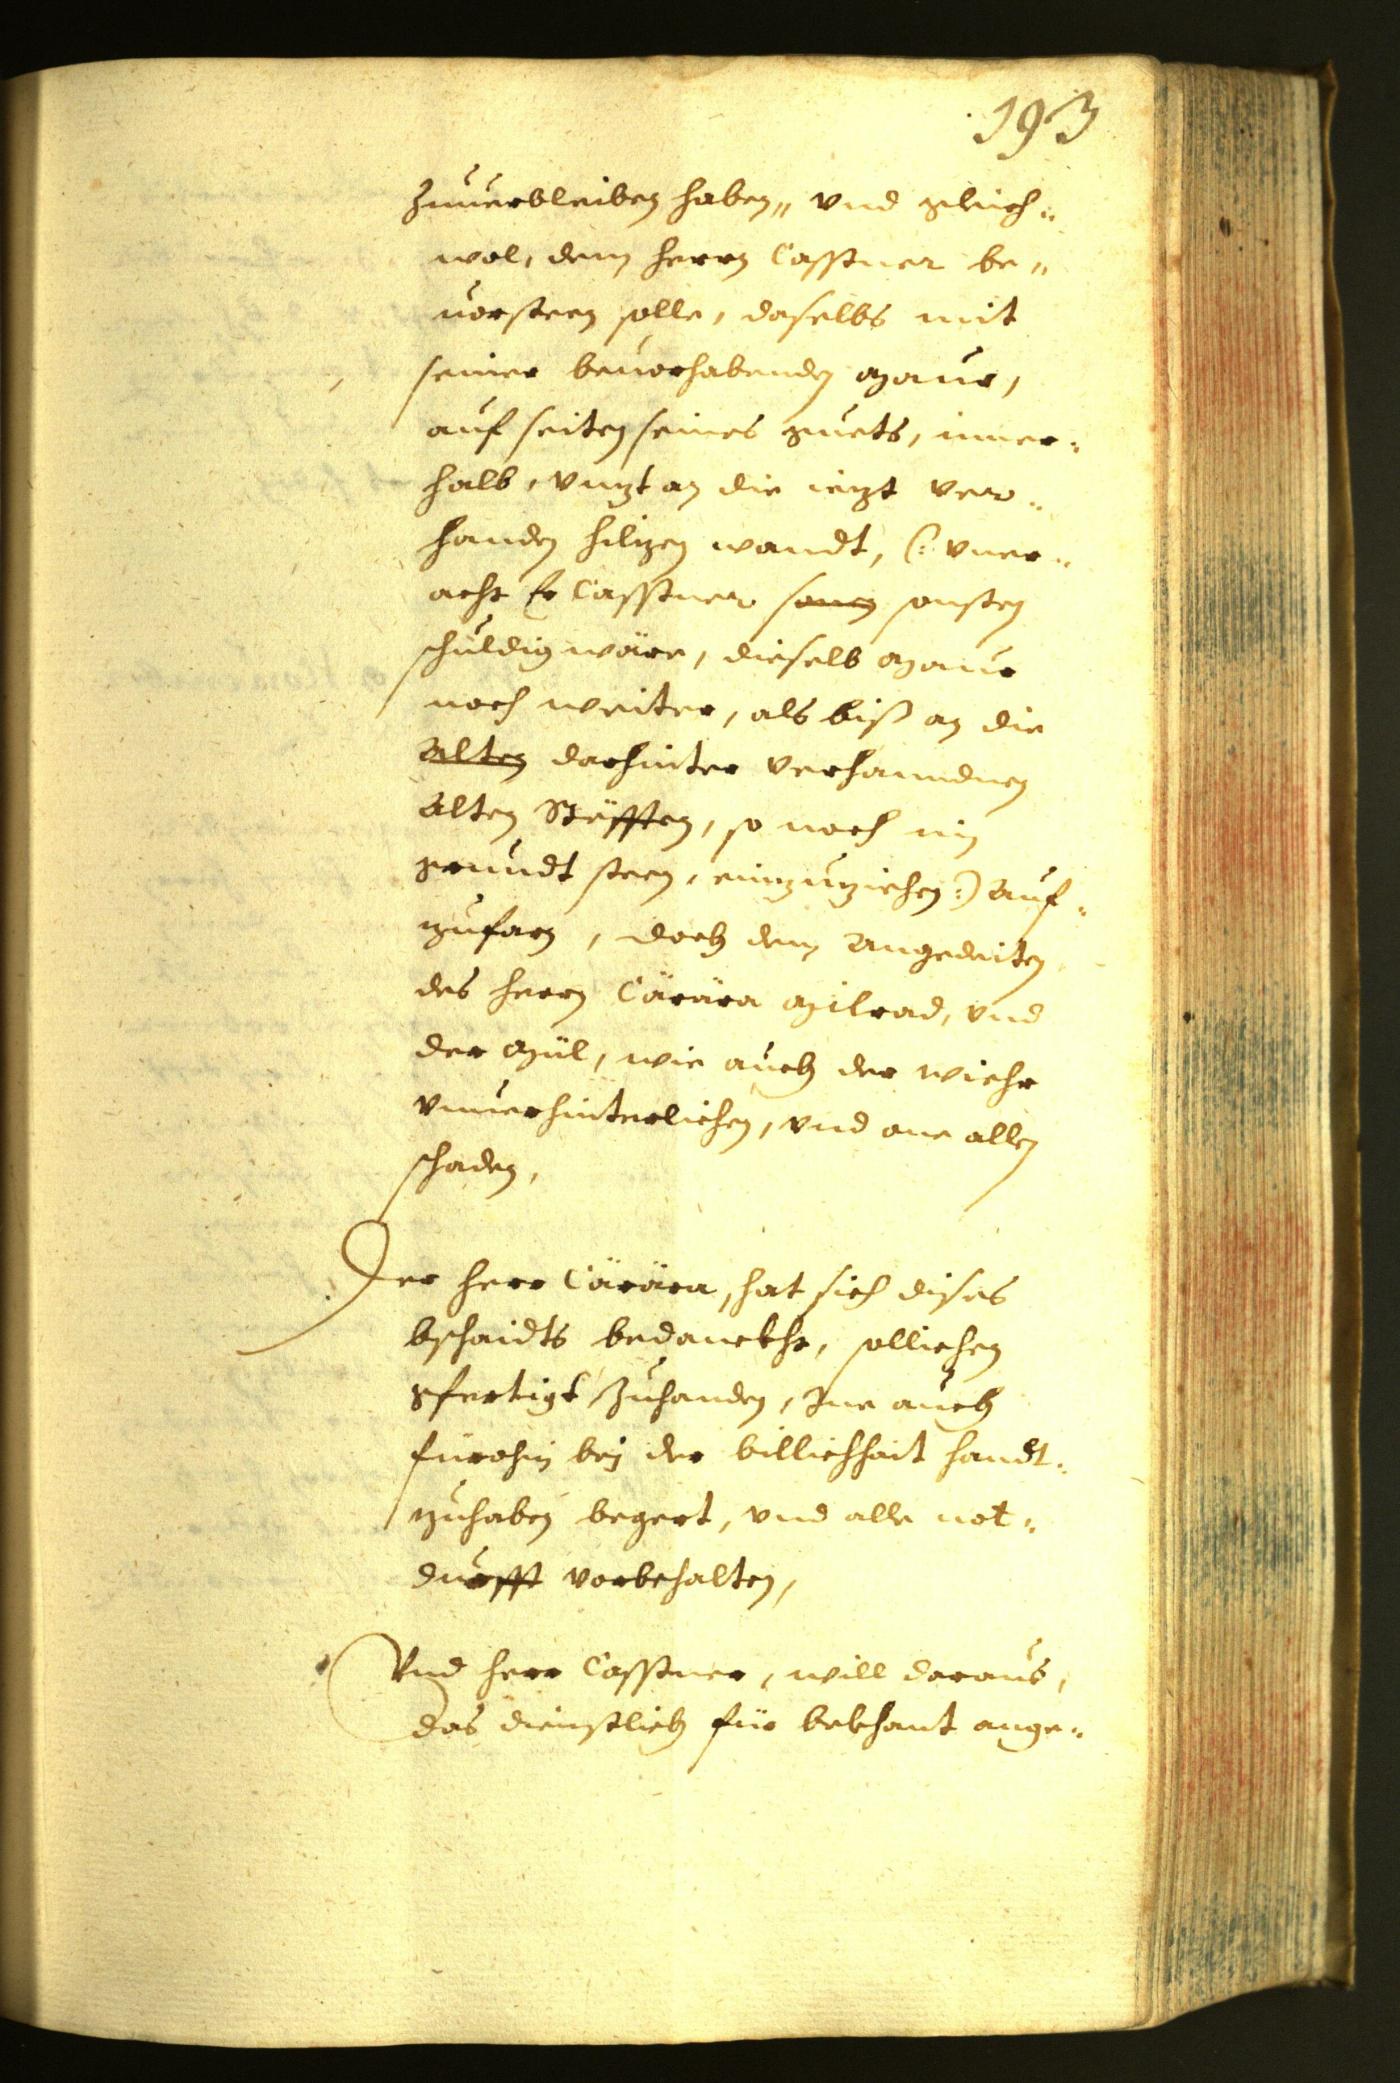 193
Zuuerbleiben haben„ vnd gleich„
wol, dem herrn Casstner be„
uorsteen solle, daselbs mit
seiner beuorhabenden maur,
auf seiten seines guets, inner„
halb, vnzt an die iezt ver„
handen hilzen wandt, (: vner„
acht Er Casstner sonsten
schuldig wäre, dieselb maur
noch weiter, als biß an die
Alten darhinter verhanndnen
Alten Stäfften, so noch im
grundt steen, einzuziehen:) Auf„
zufarn, doch dem Angedeiten
des herrn Cärära milrad, vnd
der Mül, wie auch der wiehr
vnuerhinterlichen, vnd one allen
schaden,
Der herr Cärära, hat sich dises
bschaidts bedanckht, sollichen
gfertigt Zuhanden, Ine auch
fürohin bej der billichhait handt„
zuhaben begert, vnd alle not„
durfft vorbehalten,
Vnd herr Casstner, will daraus,
das dienstlich für bekhant ange„